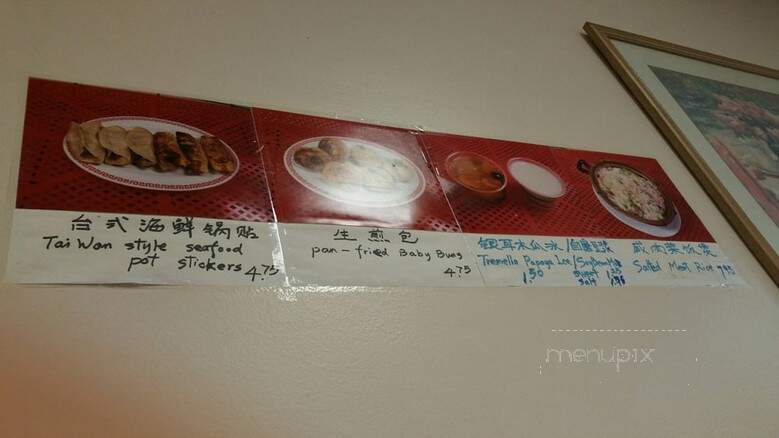 台式海鮮锅贴
TaiWan style seafood
pot stickers 4.75
生煎包
pan-fried Baby Buns
4.75
銀耳木瓜冰/鹹
Tremella Papaya Ice/Soybean
1.50 sweet
salt
咸肉菜饭煲
Salted Meat Rice
menupix